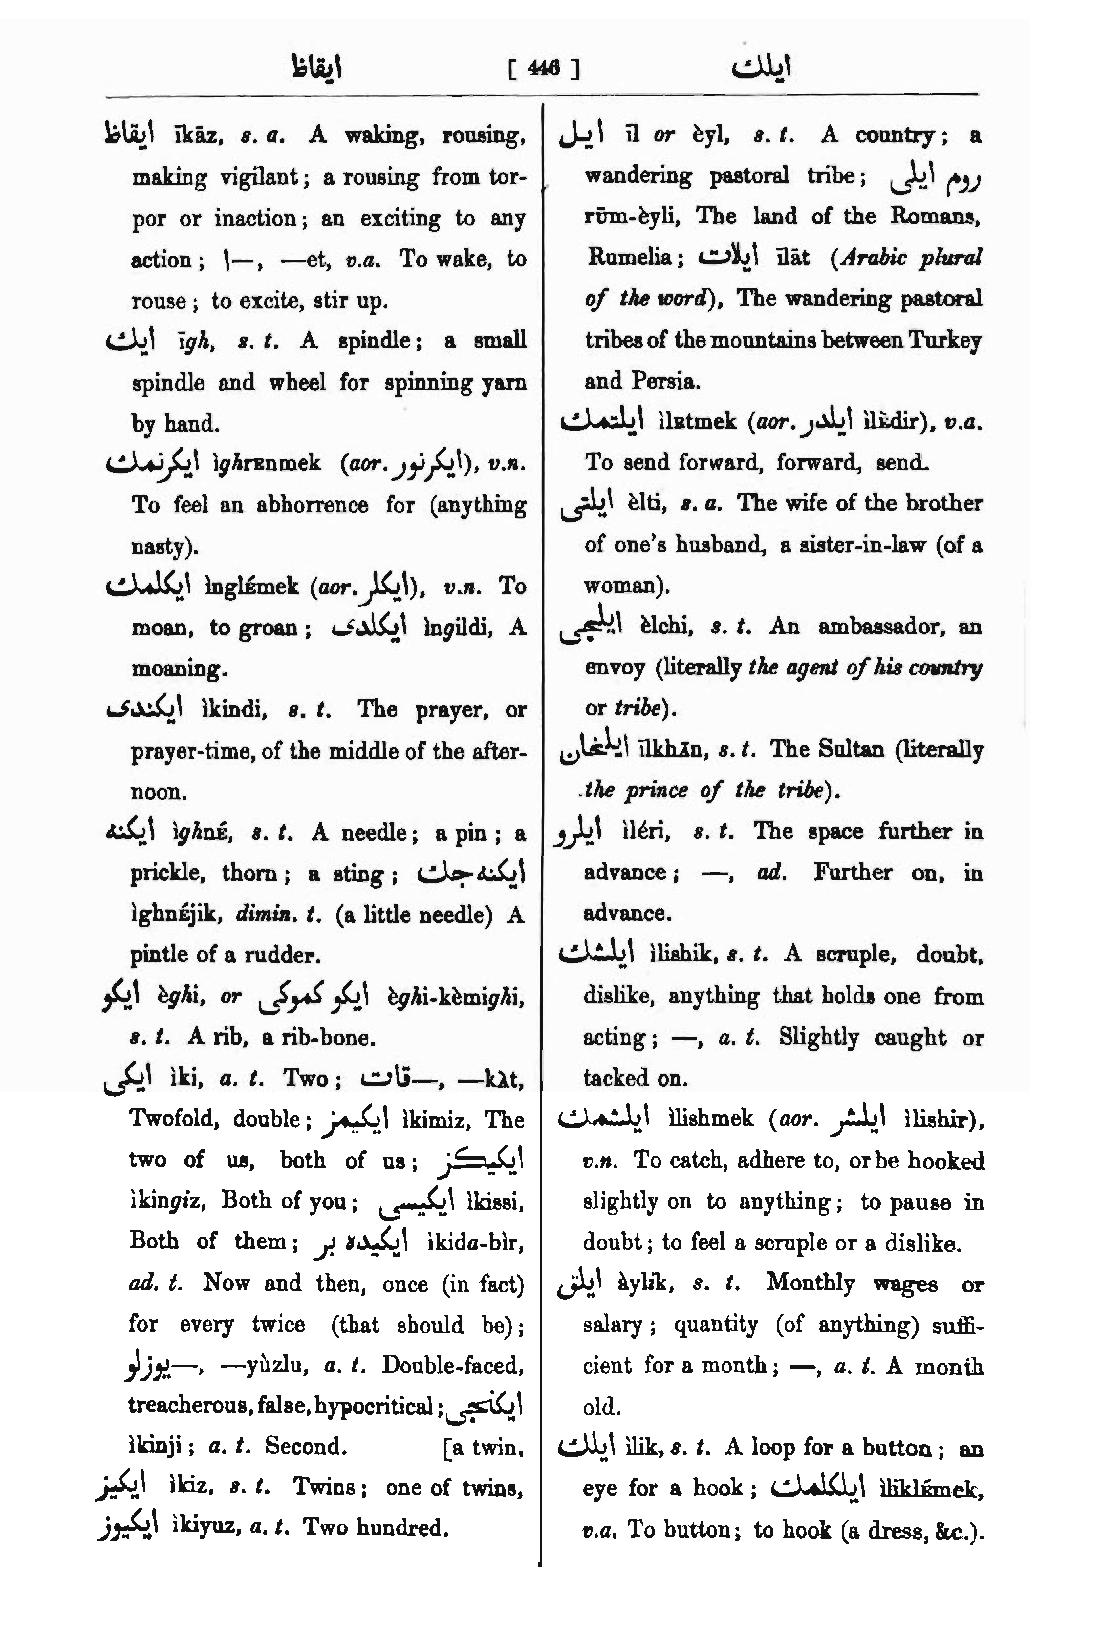 ايقاظ [ 446 ] ايلك
ايقاظ īkāz, s. a. A waking, rousing,
making vigilant; a rousing from tor-
por or inaction; an exciting to any
action; ا—, —et, v.a. To wake, to
rouse; to excite, stir up.
ايك īgh, s. t. A spindle; a small
spindle and wheel for spinning yarn
by hand.
ايكرنمك ìghrᴇnmek (aor. ايكرنور), v.n.
To feel an abhorrence for (anything
nasty).
ايكلمك ìnglémek (aor. ايكلر), v.n. To
moan, to groan; ايكلدى ìngildi, A
moaning.
ايكندى ìkindi, s. t. The prayer, or
prayer-time, of the middle of the after-
noon.
ايكنه ìghné, s. t. A needle; a pin; a
prickle, thorn; a sting; ايكنه جك
ìghnéjik, dimin. t. (a little needle) A
pintle of a rudder.
ايكو èghi, or ايكو كموكى èghi-kèmighi,
s. t. A rib, a rib-bone.
ايكى ìki, a. t. Two; قات—, —kàt,
Twofold, double; ايكيمز ìkimiz, The
two of us, both of us; ايكيكز
ìkingiz, Both of you; ايكيسى ìkissi,
Both of them; ايكيده بر ìkida-bìr,
ad. t. Now and then, once (in fact)
for every twice (that should be);
يوزلو—, —yùzlu, a. t. Double-faced,
treacherous, false, hypocritical; ايكنجى
ìkinji; a. t. Second. [a twin.
ايكيز ìkiz, s. t. Twins; one of twins,
ايكيوز ìkiyuz, a. t. Two hundred.
ايل īl or èyl, s. t. A country; a
wandering pastoral tribe; روم ايلى
rūm-èyli, The land of the Romans,
Rumelia; ايلات īlāt (Arabic plural
of the word), The wandering pastoral
tribes of the mountains between Turkey
and Persia.
ايلتمك ìlᴇtmek (aor. ايلدر ìlèdir), v.a.
To send forward, forward, send.
ايلتى èlti, s. a. The wife of the brother
of one's husband, a sister-in-law (of a
woman).
ايلچى èlchi, s. t. An ambassador, an
envoy (literally the agent of his country
or tribe).
ايلخان īlkhān, s. t. The Sultan (literally
the prince of the tribe).
ايلرو ìléri, s. t. The space further in
advance; —, ad. Further on, in
advance.
ايلشك ìlishik, s. t. A scruple, doubt,
dislike, anything that holds one from
acting; —, a. t. Slightly caught or
tacked on.
ايلشمك ìlishmek (aor. ايلشر ìlishir),
v.n. To catch, adhere to, or be hooked
slightly on to anything; to pause in
doubt; to feel a scruple or a dislike.
ايلق àylik, s. t. Monthly wages or
salary; quantity (of anything) suffi-
cient for a month; —, a. t. A month
old.
ايلك ìlik, s. t. A loop for a button; an
eye for a hook; ايلكلمك ìliklémek,
v.a. To button; to hook (a dress, &c.).